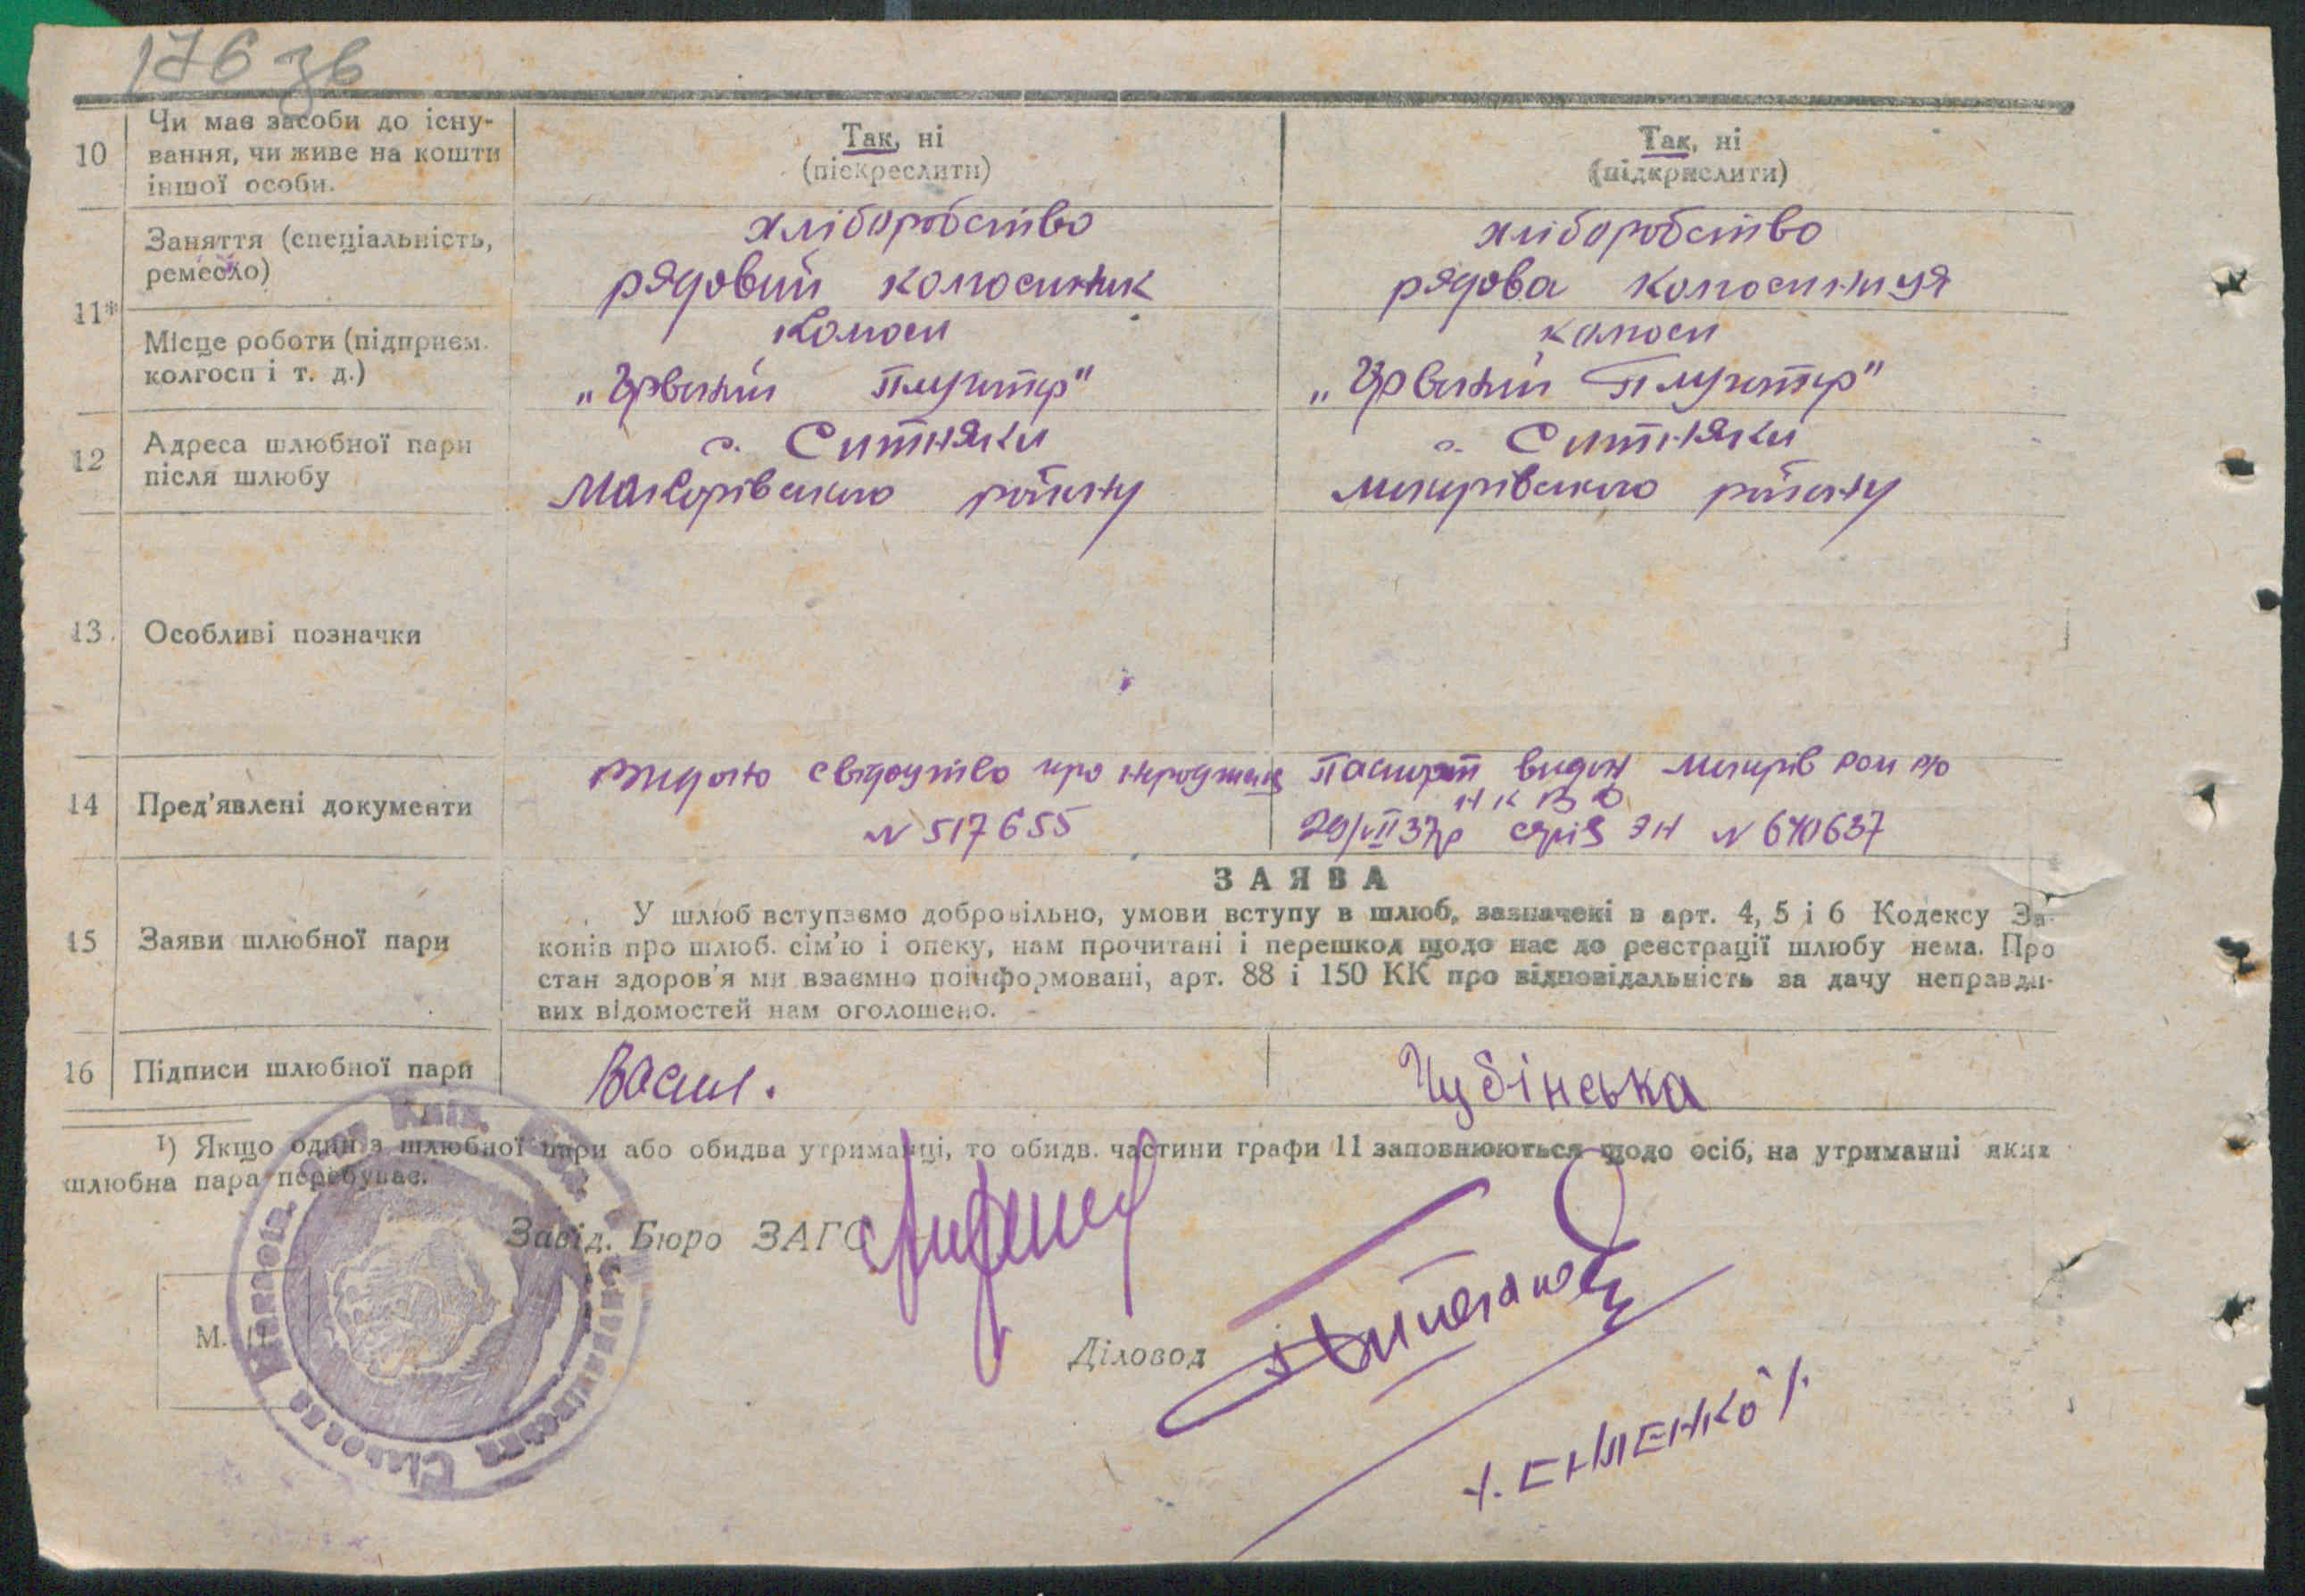 176 зв
10 Чи має засоби до існу-
вання, чи живе на кошти
іншої особи.
Так, ні
(піскреслити)
Так, ні
(підкрислити)
11* Заняття (спеціальність,
ремесло)
хліборобство
рядовий колосиник
хліборобство
рядова колосиниця
Місце роботи (підприєм.
колгосп і т. д.)
колосп
„Червоний Плугатар"
колосп
„Червоний Плугатар"
12 Адреса шлюбної пари
після шлюбу
с. Ситняки
Макарівського району
с. Ситняки
Макарівського району
13. Особливі позначки
14 Пред'явлені документи
видано свідоцтво про народження
N 517655
Паспорт видан Макарів
НКВД
29/VII 37р серія ЭН N 640637
15 Заяви шлюбної пари
ЗАЯВА
У шлюб вступаємо добровільно, умови вступу в шлюб, зазначені в арт. 4, 5 і 6 Кодексу За-
конів про шлюб. сім'ю і опеку, нам прочитані і перешкод щодо нас до реєстрації шлюбу нема. Про
стан здоров'я ми взаємно поінформовані, арт. 88 і 150 КК про відповідальність за дачу неправди-
вих відомостей нам оголошено.
16 Підписи шлюбної пари
Васил.
Чубінська
¹) Якщо один з шлюбної пари або обидва утриманці, то обидв. частини графи 11 заповнюються щодо осіб, на утриманні яких
шлюбна пара перебуває.
Завід. Бюро ЗАГС
М. П.
Діловод